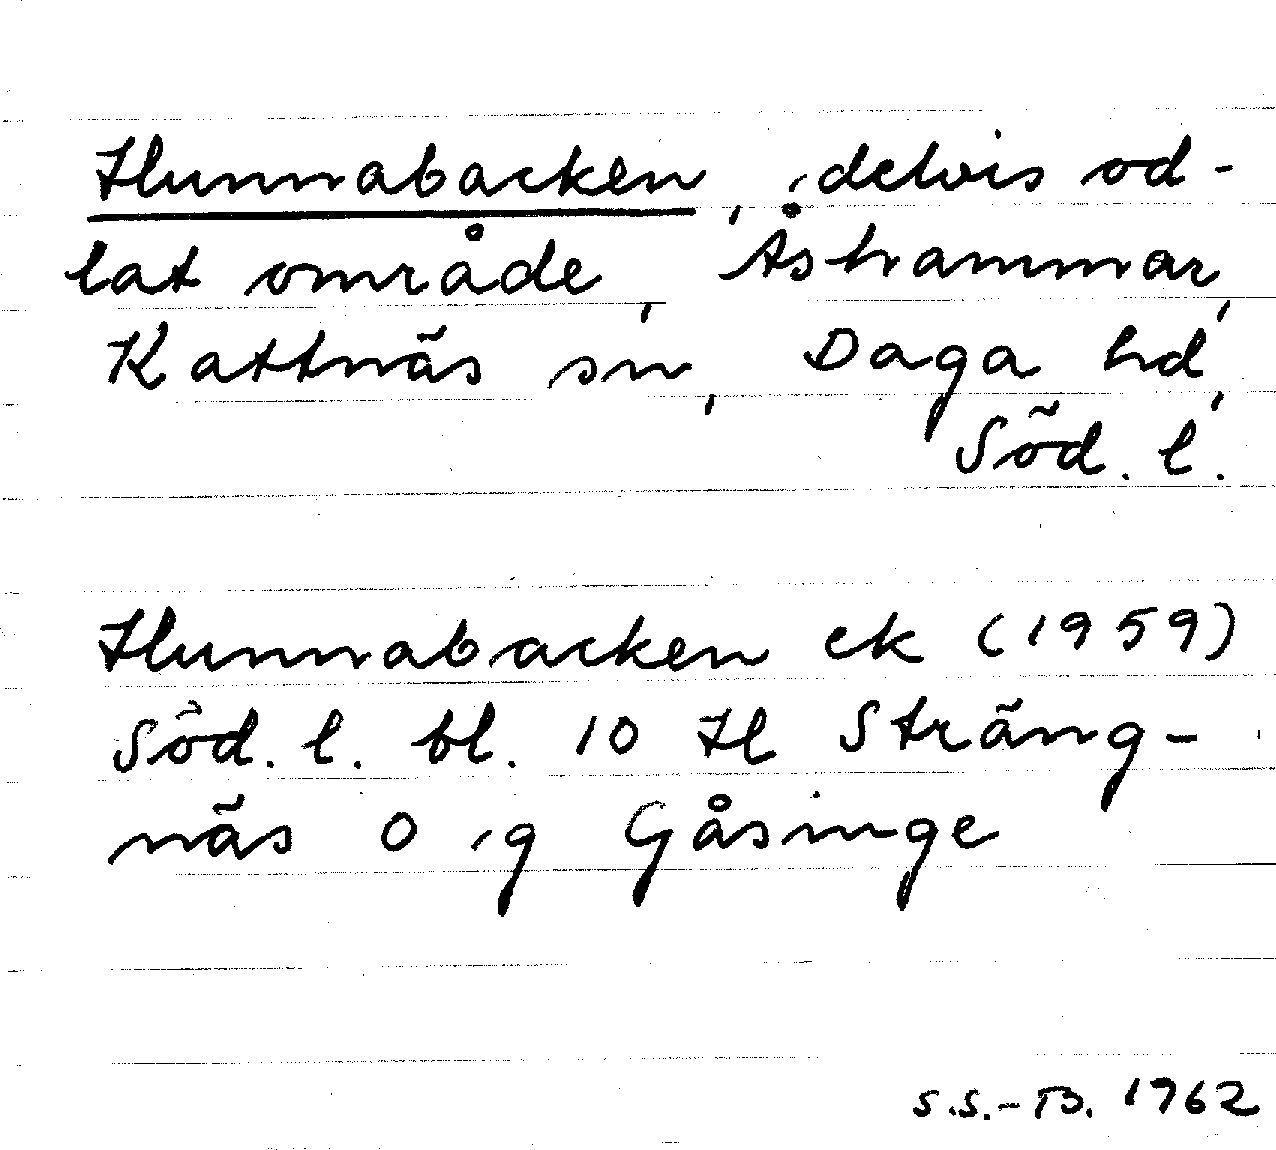 Hunnabacken, delvis od-
lat område, Åshammar,
Kattnäs sn, Daga hd,
Söd. l.
Hunnabacken ek (1959)
Söd. l. bl. 10 H Sträng-
näs 0 g Gåsinge
S.S.-B. 1962